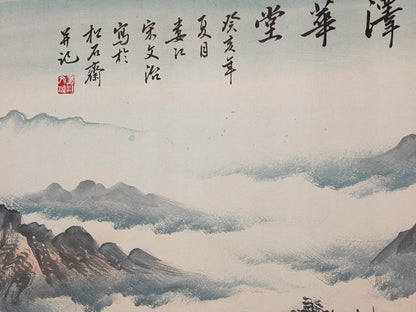 澤華堂
癸亥年
夏月
婁江
宋文治
寫於
松石齋
并记